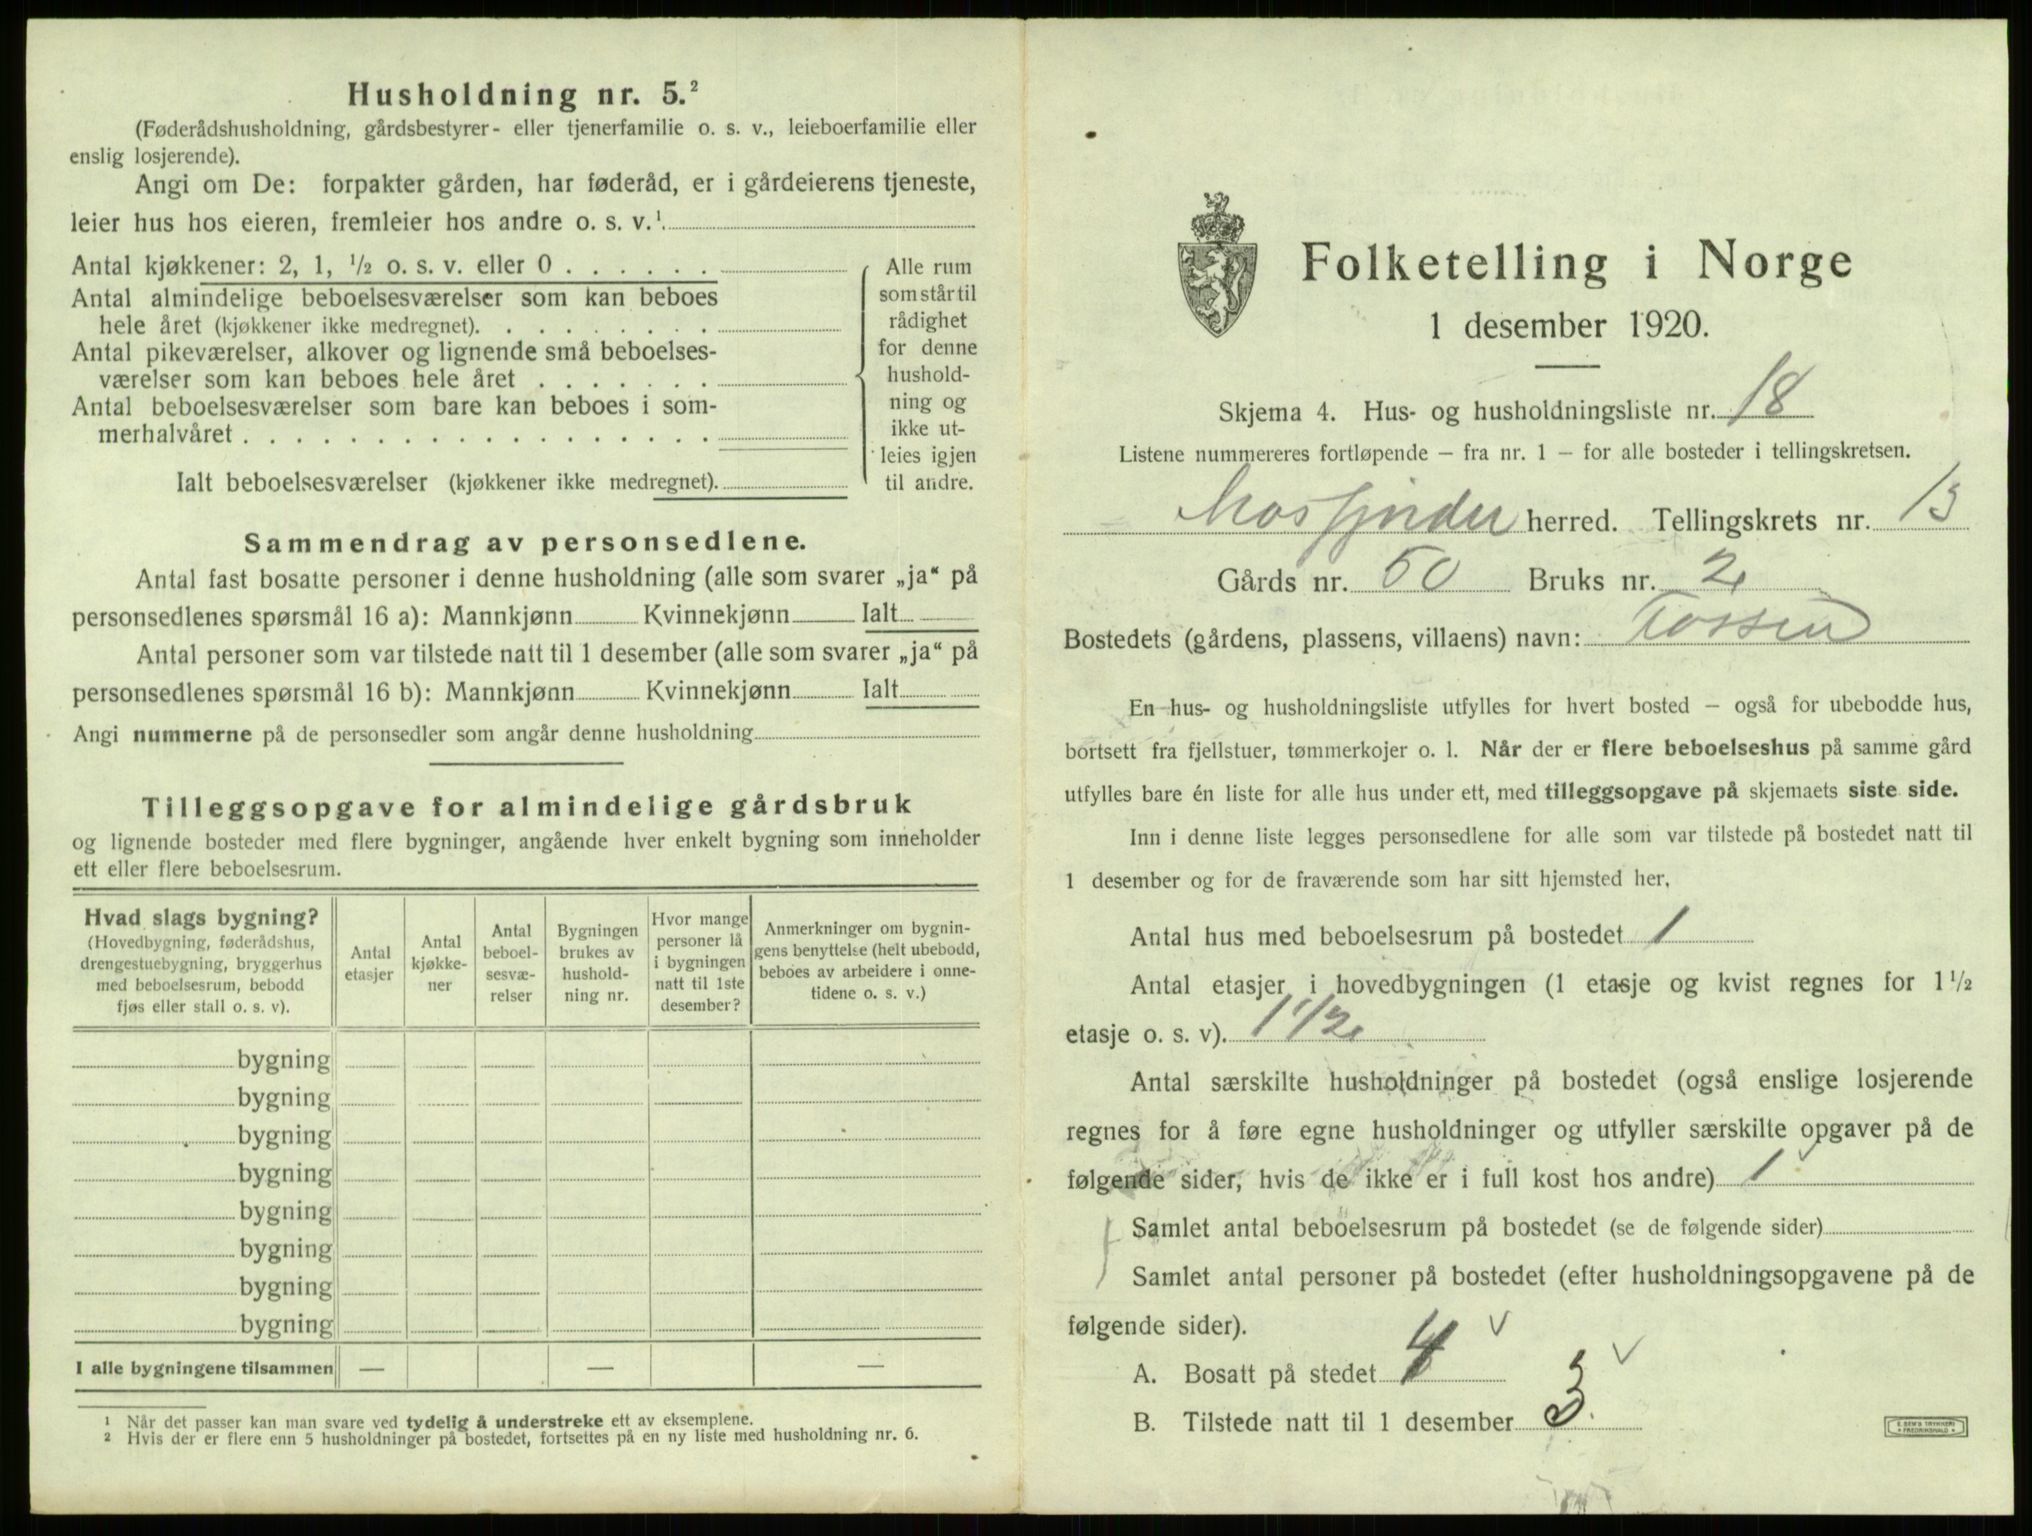 Husholdning nr. 5.²
(Føderådshusholdning, gårdsbestyrer- eller tjenerfamilie o. s. v., leieboerfamilie eller
enslig losjerende).
Angi om De: forpakter gården, har føderåd, er i gårdeierens tjeneste,
leier hus hos eieren, fremleier hos andre o. s. v.¹
Antal kjøkkener: 2, 1, ½ o. s. v. eller 0 . . . . . .
Antal almindelige beboelsesværelser som kan beboes
hele året (kjøkkener ikke medregnet). . . . . . . . .
Antal pikeværelser, alkover og lignende små beboelses-
værelser som kan beboes hele året . . . . . . .
Antal beboelsesværelser som bare kan beboes i som-
merhalvåret . . . . . . . . . . . . . . . . . .
Ialt beboelsesværelser (kjøkkener ikke medregnet).
Alle rum
som står til
rådighet
for denne
hushold-
ning og
ikke ut-
leies igjen
til andre.
Sammendrag av personsedlene.
Antal fast bosatte personer i denne husholdning (alle som svarer „ja“ på
personsedlenes spørsmål 16 a): Mannkjønn Kvinnekjønn Ialt
Antal personer som var tilstede natt til 1 desember (alle som svarer „ja“ på
personsedlenes spørsmål 16 b): Mannkjønn Kvinnekjønn Ialt
Angi nummerne på de personsedler som angår denne husholdning
Tilleggsopgave for almindelige gårdsbruk
og lignende bosteder med flere bygninger, angående hver enkelt bygning som inneholder
ett eller flere beboelsesrum.
Hvad slags bygning?
(Hovedbygning, føderådshus,
drengestuebygning, bryggerhus
med beboelsesrum, bebodd
fjøs eller stall o. s. v).
Antal
etasjer
Antal
kjøkke-
ner
Antal
beboel-
sesvæ-
relser
Bygningen
brukes av
hushold-
ning nr.
Hvor mange
personer lå
i bygningen
natt til 1ste
desember?
Anmerkninger om bygnin-
gens benyttelse (helt ubebodd,
beboes av arbeidere i onne-
tidene o. s. v.)
bygning
bygning
bygning
bygning
bygning
bygning
bygning
bygning
I alle bygningene tilsammen — — —
¹ Når det passer kan man svare ved tydelig å understreke ett av eksemplene.
² Hvis der er flere enn 5 husholdninger på bostedet, fortsettes på en ny liste med husholdning nr. 6.
Folketelling i Norge
1 desember 1920.
Skjema 4. Hus- og husholdningsliste nr. 18
Listene nummereres fortløpende — fra nr. 1 — for alle bosteder i tellingskretsen.
Masfjorden herred. Tellingskrets nr. 13
Gårds nr. 50 Bruks nr. 2
Bostedets (gårdens, plassens, villaens) navn: Fossen
En hus- og husholdningsliste utfylles for hvert bosted — også for ubebodde hus,
bortsett fra fjellstuer, tømmerkojer o. l. Når der er flere beboelseshus på samme gård
utfylles bare én liste for alle hus under ett, med tilleggsopgave på skjemaets siste side.
Inn i denne liste legges personsedlene for alle som var tilstede på bostedet natt til
1 desember og for de fraværende som har sitt hjemsted her.
Antal hus med beboelsesrum på bostedet 1
Antal etasjer i hovedbygningen (1 etasje og kvist regnes for 1½
etasje o. s. v). 1 1/2
Antal særskilte husholdninger på bostedet (også enslige losjerende
regnes for å føre egne husholdninger og utfyller særskilte opgaver på de
følgende sider, hvis de ikke er i full kost hos andre) 1
Samlet antal beboelsesrum på bostedet (se de følgende sider)
Samlet antal personer på bostedet (efter husholdningsopgavene på de
følgende sider).
A. Bosatt på stedet 4 v
B. Tilstede natt til 1 desember 3. v
E. SEM'S TRYKKERI
FREDRIKSHALD